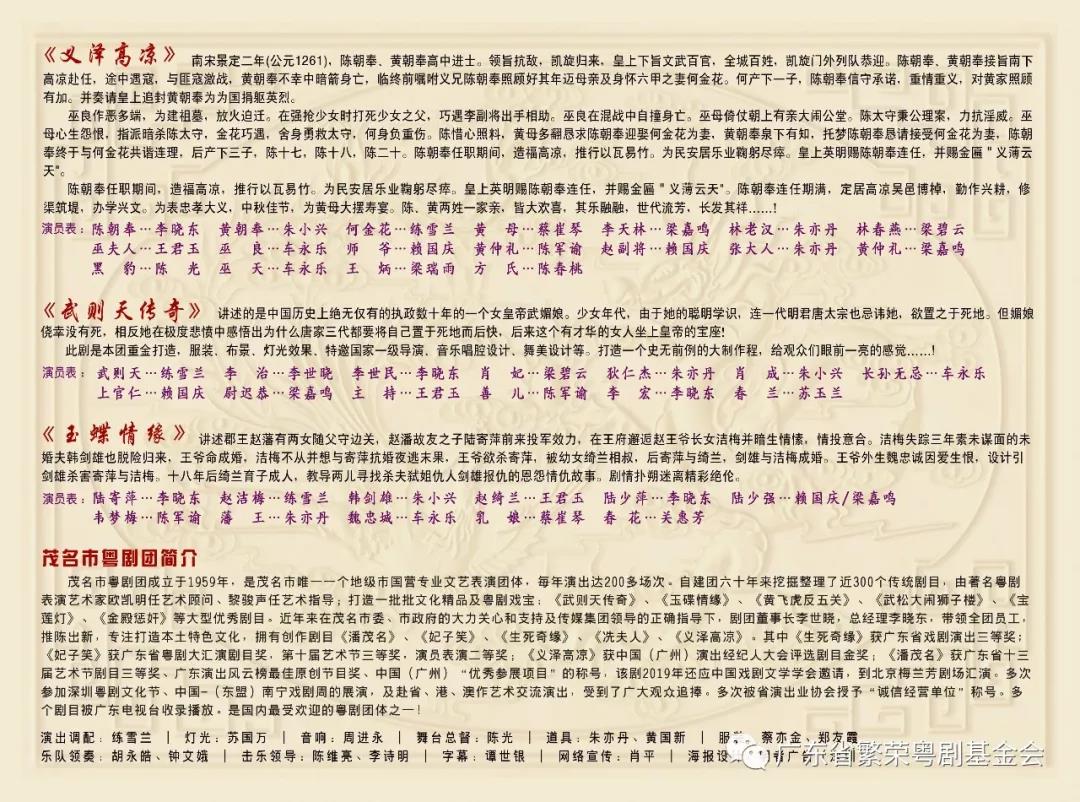 《义泽高凉》 南宋景定二年(公元1261)，陈朝奉、黄朝奉高中进士。领旨抗敌，凯旋归来，皇上下旨文武百官，全城百姓，凯旋门外列队恭迎。陈朝奉、黄朝奉接旨南下
高凉赴任，途中遇寇，与匪寇激战，黄朝奉不幸中暗箭身亡，临终前嘱咐义兄陈朝奉照顾好其年迈母亲及身怀六甲之妻何金花。何产下一子，陈朝奉信守承诺，重情重义，对黄家照顾
有加。并奏请皇上追封黄朝奉为为国捐躯英烈。
巫良作恶多端，为建祖墓，放火迫迁。在强抢少女时打死少女之父，巧遇李副将出手相助。巫良在混战中自撞身亡。巫母倚仗朝上有亲大闹公堂。陈太守秉公理案，力抗淫威。巫
母心生怨恨，指派暗杀陈太守，金花巧遇，舍身勇救太守，何身负重伤。陈惜心照料，黄母多翻恳求陈朝奉迎娶何金花为妻，黄朝奉泉下有知，托梦陈朝奉恳请接受何金花为妻，陈朝
奉终于与何金花共谐连理，后产下三子，陈十七，陈十八，陈二十。陈朝奉任职期间，造福高凉，推行以瓦易竹。为民安居乐业鞠躬尽瘁。皇上英明赐陈朝奉连任，并赐金匾＂义薄云
天"。
陈朝奉任职期间，造福高凉，推行以瓦易竹。为民安居乐业鞠躬尽瘁。皇上英明赐陈朝奉连任，并赐金匾＂义薄云天"。陈朝奉连任期满，定居高凉吴邑博棹，勤作兴耕，修
渠筑堤，办学兴文。为表忠孝大义，中秋佳节，为黄母大摆寿宴。陈、黄两姓一家亲，皆大欢喜，其乐融融，世代流芳，长发其祥……!
演员表：陈朝奉…李晓东 黄朝奉…朱小兴 何金花…练雪兰 黄 母…蔡崔琴 李天林…梁嘉鸣 林老汉…朱亦丹 林春燕…梁碧云
巫夫人…王君玉 巫 良…车永乐 师 爷…赖国庆 黄仲礼…陈军谕 赵副将…赖国庆 张大人…朱亦丹 黄仲礼…梁嘉鸣
黑 豹…陈 光 巫 天…车永乐 王 炳…梁瑞雨 方 氏…陈春桃
《武则天传奇》 讲述的是中国历史上绝无仅有的执政数十年的一个女皇帝武媚娘。少女年代，由于她的聪明学识，连一代明君唐太宗也忌讳她，欲置之于死地。但媚娘
侥幸没有死，相反她在极度悲愤中感悟出为什么唐家三代都要将自己置于死地而后快，后来这个有才华的女人坐上皇帝的宝座!
此剧是本团重金打造，服装、布景、灯光效果、特邀国家一级导演、音乐唱腔设计、舞美设计等。打造一个史无前例的大制作程，给观众们眼前一亮的感觉……!
演员表：武则天…练雪兰 李 治…李世晓 李世民…李晓东 肖 妃…梁碧云 狄仁杰…朱亦丹 肖 成…朱小兴 长孙无忌…车永乐
上官仁…赖国庆 尉迟恭…梁嘉鸣 主 持…王君玉 善 儿…陈军谕 李 宏…李晓东 春 兰…苏玉兰
《玉蝶情缘》 讲述郡王赵藩有两女随父守边关，赵潘故友之子陆寄萍前来投军效力，在王府邂逅赵王爷长女洁梅并暗生情愫，情投意合。洁梅失踪三年素未谋面的未
婚夫韩剑雄也脱险归来，王爷命成婚，洁梅不从并想与寄萍抗婚夜逃末果，王爷欲杀寄萍，被幼女绮兰相叔，后寄萍与绮兰，剑雄与洁梅成婚。王爷外生魏忠诚因爱生恨，设计引
剑雄杀害寄萍与洁梅。十八年后绮兰育子成人，教导两儿寻找杀夫弑姐仇人剑雄报仇的恩怨情仇故事。剧情扑朔迷离精彩绝伦。
演员表：陆寄萍…李晓东 赵洁梅…练雪兰 韩剑雄…朱小兴 赵绮兰…王君玉 陆少萍…李晓东 陆少强…赖国庆/梁嘉鸣
韦梦梅…陈军谕 藩 王…朱亦丹 魏忠城…车永乐 乳 娘…蔡崔琴 春 花…关惠芳
茂名市粤剧团简介
茂名市粤剧团成立于1959年，是茂名市唯一一个地级市国营专业文艺表演团体，每年演出达200多场次。自建团六十年来挖掘整理了近300个传统剧目，由著名粤剧
表演艺术家欧凯明任艺术顾问、黎骏声任艺术指导；打造一批批文化精品及粤剧戏宝：《武则天传奇》、《玉碟情缘》、《黄飞虎反五关》、《武松大闹狮子楼》、《宝
莲灯》、《金殿惩奸》等大型优秀剧目。近年来在茂名市委、市政府的大力关心和支持及传媒集团领导的正确指导下，剧团董事长李世晓，总经理李晓东，带领全团员工，
推陈出新，专注打造本土特色文化，拥有创作剧目《潘茂名》、《妃子笑》、《生死奇缘》、《冼夫人》、《义泽高凉》。其中《生死奇缘》获广东省戏剧演出三等奖；
《妃子笑》获广东省粤剧大汇演剧目奖，第十届艺术节三等奖，演员表演二等奖；《义泽高凉》获中国（广州）演出经纪人大会评选剧目金奖；《潘茂名》获广东省十三
届艺术节剧目三等奖、广东演出风云榜最佳原创节目奖、中国（广州）“优秀参展项目”的称号，该剧2019年还应中国戏剧文学学会邀请，到北京梅兰芳剧场汇演。多次
参加深圳粤剧文化节、中国-（东盟）南宁戏剧周的展演，及赴省、港、澳作艺术交流演出，受到了广大观众追捧。多次被省演出业协会授予“诚信经营单位”称号。多
个剧目被广东电视台收录播放。是国内最受欢迎的粤剧团体之一！
演出调配：练雪兰 | 灯光：苏国万 | 音响：周进永 | 舞台总督：陈光 | 道具：朱亦丹、黄国新 | 服 蔡亦金、郑友霞
乐队领奏：胡永皓、钟文娥 | 击乐领导：陈维亮、李诗明 | 字幕：谭世银 | 网络宣传：肖平 | 海报设
广东省繁荣粤剧基金会